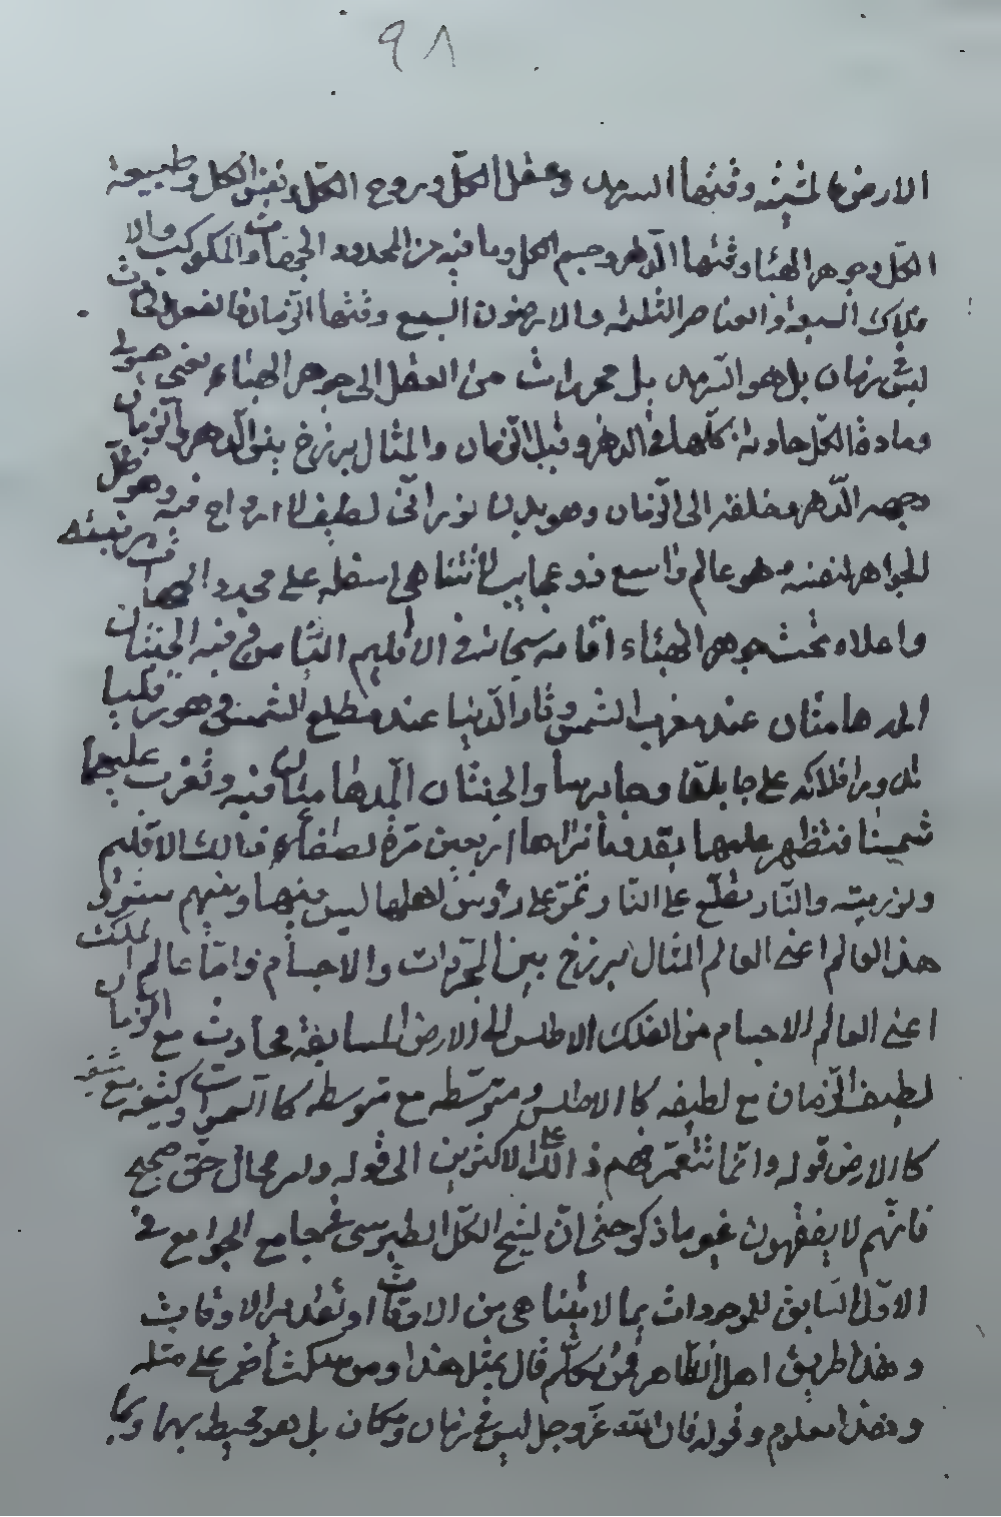 ٩٨
الارض بالمشيئه وقتها السرمد وعقل الكلّ وروح الكلّ ونفس الكل وطبيعة
الكلّ وجوهر الهباء وقتها الدّهر وجسم الكل وما فيه من المحدود الجهات والكوكب والا
فلاك السبعة والعناصر الثلثه والارضون السبع وقتها الزمان فالفعل الحادث
ليس زمان بل هو السّرمد بل مجردات من العقل الى جوهر الهباء يعنى هيولى
ومادة الكلّ حادثة كلّها فى الدهر وقبل الزّمان والمثال برزخ بين الدّهر والزمان
وجهه الدّهر وخلفه الى الزّمان وهو بدن نورانّى لطيف لا ارواح فيه وهو ظلّ
للجواهر لنفسه وهو عالم واسع ذو عجايب لا تتناهى اسفله على محدد الجهات مرتبته
واعلاه تحت جوهر الهباء اقامه سبحانه فى الاقليم الثامن فيه الجنتان
المدهامتان عند مغرب الشمس ونار الدّنيا عند مطلع الشمس فى هورقليا
تدور افلاكه على جابلقا وجابرسا والجنتان المدهامتان فيه وتغرب عليهما
شمسنا فتظهر عليهما بقدر ما نراها اربعين مرّة لصفاء ذالك الاقليم
ونوريته والنار تطلع على النار وتمرّ على رؤس اهلها ليس بينها وبينهم ستر و
هذا العالم اعنى العالم المثال برزخ بين المجرّدات والاجسام وامّا عالم الملك
اعنى العالم الاجسام من الفلك الاطلس الى الارض السابعة محادث مع الزمان
لطيف الزّمان مع لطيفه كا الاطلس ومتوسّطه مع متوسطه كا السموات وكثيفه مع كثيفه
كا الارض قوله وانّما تتعسّر فهم ذالك على الاكثرين الى قوله ولا محال حتى صحيح
فانّهم لا يفقهون غير ما ذكر حتى انّ الشيخ الكلّ الطبرسى فى جامع الجوامع فى
الاوّل السّابق للموجودات بما لا يتناهى من الاوقات او تقدير الاوقات
وهذا طريق اهل الظّاهر فمن تكلّم قال بمثل هذا ومن سكت اضمر على مثله
وهذا معلوم وقوله فان الله عزّ وجل ليس فى زمان ومكان بل هو محيط بهما وبما